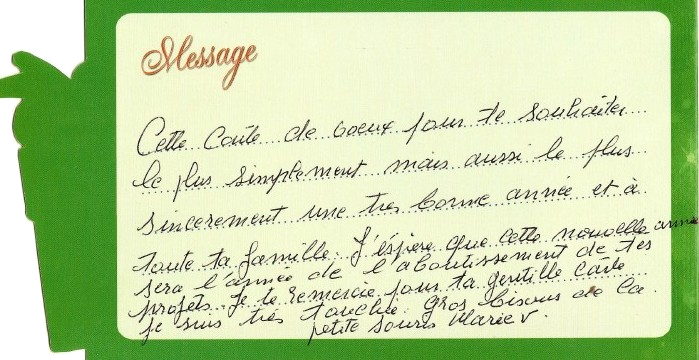 Message
Cette carte de voeux pour te souhaiter
le plus simplement mais aussi le plus
sincerement une très bonne année et à
toute ta famille. J'éspère que cette nouvelle année
sera l'année de l'aboutissement de tes
projets. Je te remercie pour ta gentille carte
je suis très touchée. gros bisous de la
petite souris Marie v.